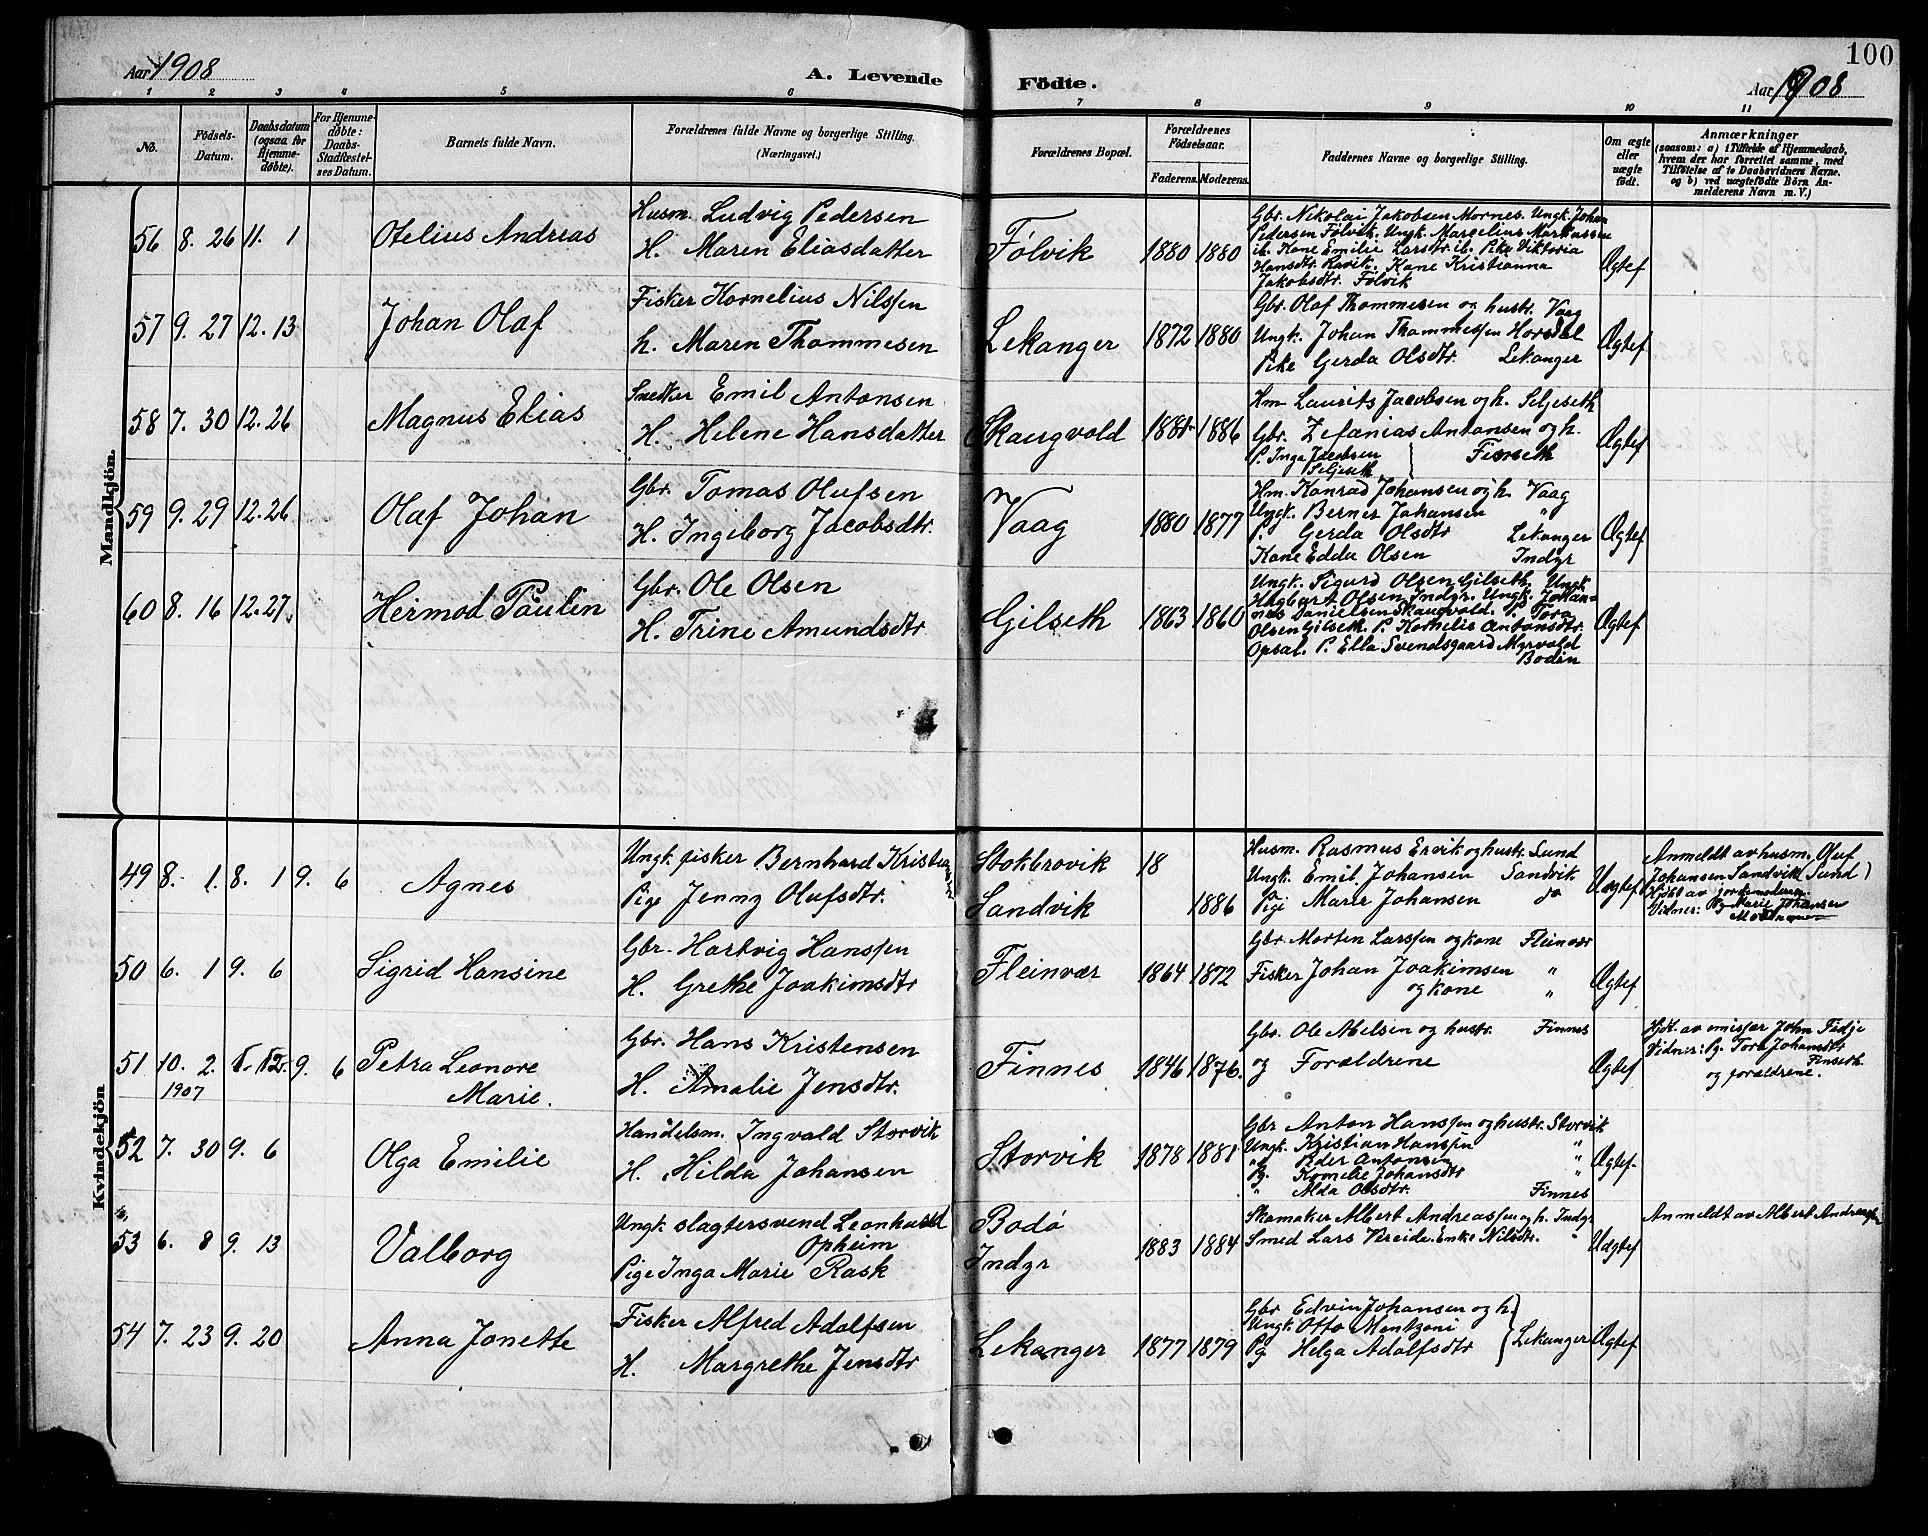 100
Aar 1908
A. Levende
Födte.
Aar 1908
1 2 3 4 5 6 7 8 9 10 11
No.
Födsels-
Datum.
Daabsdatum
(ogsaa for
Hjemme-
döbte).
For Hjemme-
döbte:
Daabs-
Stadfæstel-
ses Datum.
Barnets fulde Navn.
Forældrenes fulde Navne og borgerlige Stilling.
(Næringsvei.)
Forældrenes Bopæl.
Forældrenes
Födselsaar.
Faderens. Moderens.
Faddernes Navne og borgerlige Stilling.
Om ægte
eller
uægte
födt.
Anmærkninger
(saasom: a) i Tilfælde af Hjemmedaab,
hvem der har forrettet samme, med
Tilföielse af to Daabsvidners Navne.
og b) ved uægtefödte Börn An-
melderens Navn m. V.)
Mandkjön.
56 8. 26 11. 1
Otelius Andreas
Husm. Ludvig Pedersen
H. Maren Eliasdatter
Følvik
1880 1880
Gbr. Nikolai Jakobsen Mornes. Ungk. Johan
Pedersen Følvik. Ungk. Marcelius Markussen
ib. Kone Emilie Larsdtr. ib. Pike Viktoria
Hansdtr. Ravik. Kone Kristianna
Jakobsdtr. Følvik
Ægtef
57 9. 27 12. 13
Johan Olaf
Fisker Kornelius Nilssen
h. Maren Thommesen
Lekanger
1872 1880
Gbr. Olaf Thommesen og hustr. Vaag
Ungk. Johan Thommessen Horsdal
Pike Gerda Olsdtr. Lekanger
Ægtef
58 7. 30 12. 26
Magnus Elias
Snedker Emil Antonsen
H. Helene Hansdatter
Skaugvold
1881 1886
Hm Laurits Jacobsen og h. Seljeseth
Gbr. Zefanias Antonsen og h.
P. Inga Jacobsen
Seljeseth
Finseth
Ægtef
59 9. 29 12. 26
Olaf Johan
Gbr. Tomas Olufsen
H. Ingeborg Jacobsdtr.
Vaag
1880 1877
Hm. Konrad Johansen og h. Vaag
Ungk. Berner Johansen "
P. Gerda Olsdtr Lekanger
Kone Edda Olsen Indyr
Ægtef
60 8. 16 12. 27
Hermod Paulin
Gbr. Ole Olsen
H. Trine Amundsdtr
Gilseth
1863 1860
Ungk. Sigurd Olsen Gilseth. Ungk.
Hagbart Olsen Indyr. Ungk. Johan-
nes Danielsen Skaugvold. P. Tora
Olsen Gilseth. P. Kornelie Antonsdtr.
Opsal. P. Ella Svendsgaard Myrvold
Bodin
Ægtef
Kvindekjön
49 8. 1. 8. 1 9. 6
Agnes
Ungk. fisker Bernhard
Pige Jenny Olufsdtr.
Stokbrovik
Sandvik
18
1886
Husm. Rasmus Ervik og hustr. Sund
Ungk. Emil Johansen Sandvik
Pige Marie Johansen do
Uægtef
Anmeldt av husm. Oluf
Johansen Sandvik (Sund)
Hjdbt av jordemoderen
Vidner: Pg Marie Johansen
50 6. 1 9. 6
Sigrid Hansine
Gbr. Hartvig Hanssen
H. Grethe Joakimsdtr
Fleinvær
1864 1872
Gbr Morten Larssen og kone Fleinvær
Fisker Johan Joakimsen "
og kone "
Ægtef
51 10. 2. 9. 6
1907
Petra Leonore
Marie.
Gbr. Hans Kristensen
H. Amalie Jensdtr.
Finnes
1846 1876.
Gbr. Ole Abelsen og hustr. Finnes
og Forældrene
Ægtef
Hjd. av emissær John Fedje
Vidner: Pg. Tora Johansdtr
Finseth
og forældrene.
52 7. 30 9. 6
Olga Emilie
Handelsm. Ingvald Storvik
H. Hilda Johansen
Storvik
1878 1881
Gbr Anton Hanssen og hustr. Storvik
Ungk. Kristian Hanssen "
" Peder Antonsen "
Pg. Kornelie Johansdtr "
" Alda Olsdtr. Finnes
Ægtef.
53 6. 8 9. 13
Valborg
Ungk. slagtersvend Leonhard
Opheim
Pige Inga Marie Rask
Bodø
Indyr
1883 1884
Skomaker Albert Andreassen og h. Indyr
Smed Lars Vereide. Enke Nilsdtr. "
Uægtef
Anmeldt av Albert Andreassen
54 7. 23 9. 20
Anna Jonette
Fisker Alfred Adolfsen
H. Margrethe Jensdtr
Lekanger
1877 1879
Gbr Edvin Johansen og h.
Ungk. Otto Mentzoni
Pg Helga Adolfsdtr
Lekanger
Ægtef